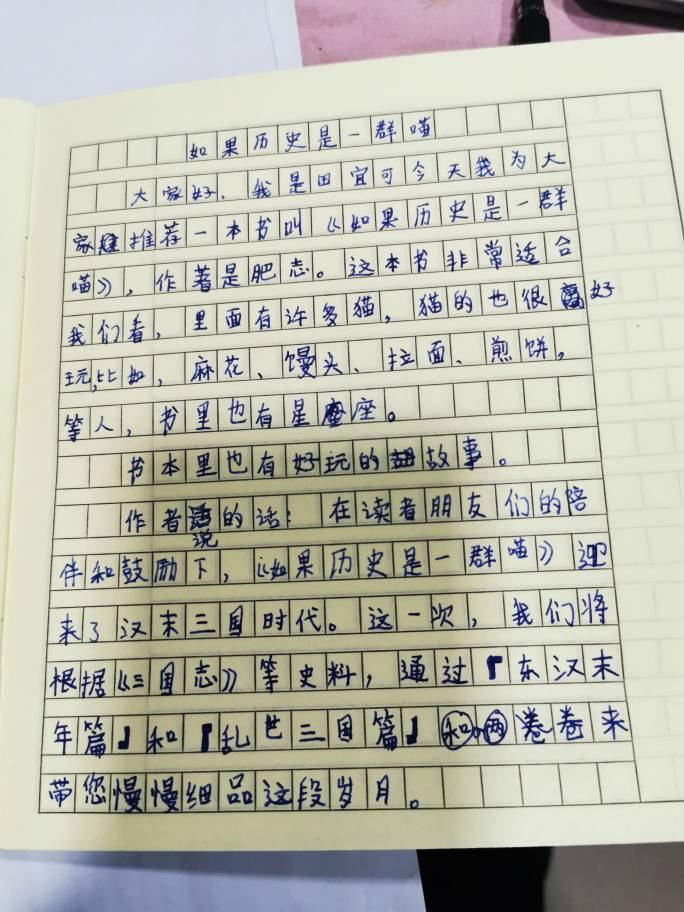 如果历史是一群喵
大家好，我是田宜可今天我为大
家推荐一本书叫《如果历史是一群
喵》，作著是肥志。这本书非常适合
我们看，里面有许多猫，猫的也很好
玩，比如，麻花、馒头、拉面、煎饼，
等人，书里也有星座。
书本里也有好玩的故事。
作者说的话：在读者朋友们的陪
伴和鼓励下，《如果历史是一群喵》迎
来了汉末三国时代。这一次，我们将
根据《三国志》等史料，通过『东汉末
年篇』和『乱世三国篇』和两卷卷来
带您慢慢细品这段岁月。